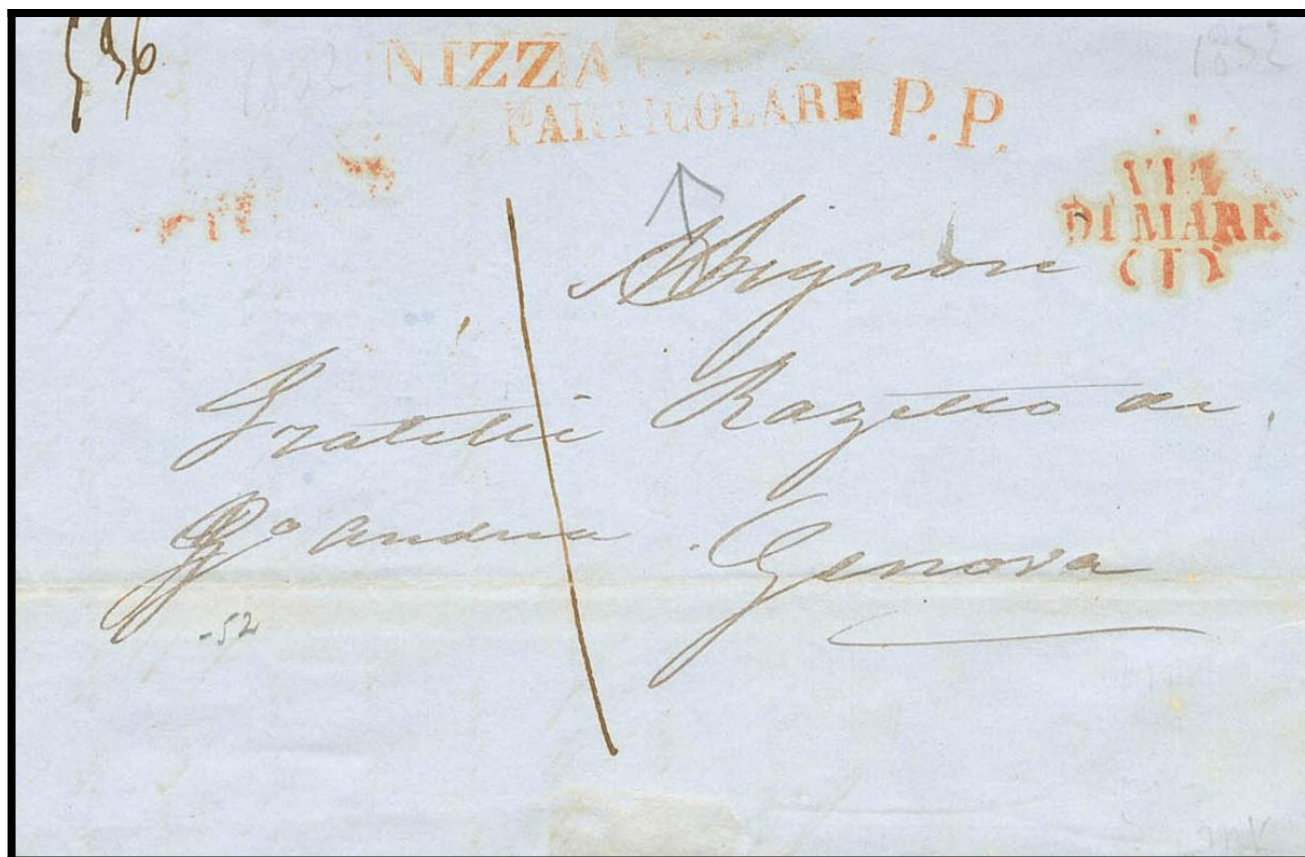 596
1852
NIZZA
PARTICOLARE P.P.
VIA
DI MARE
(I)
Signori
Fratelli Razetto di
Gio Andrea
Genova
-52